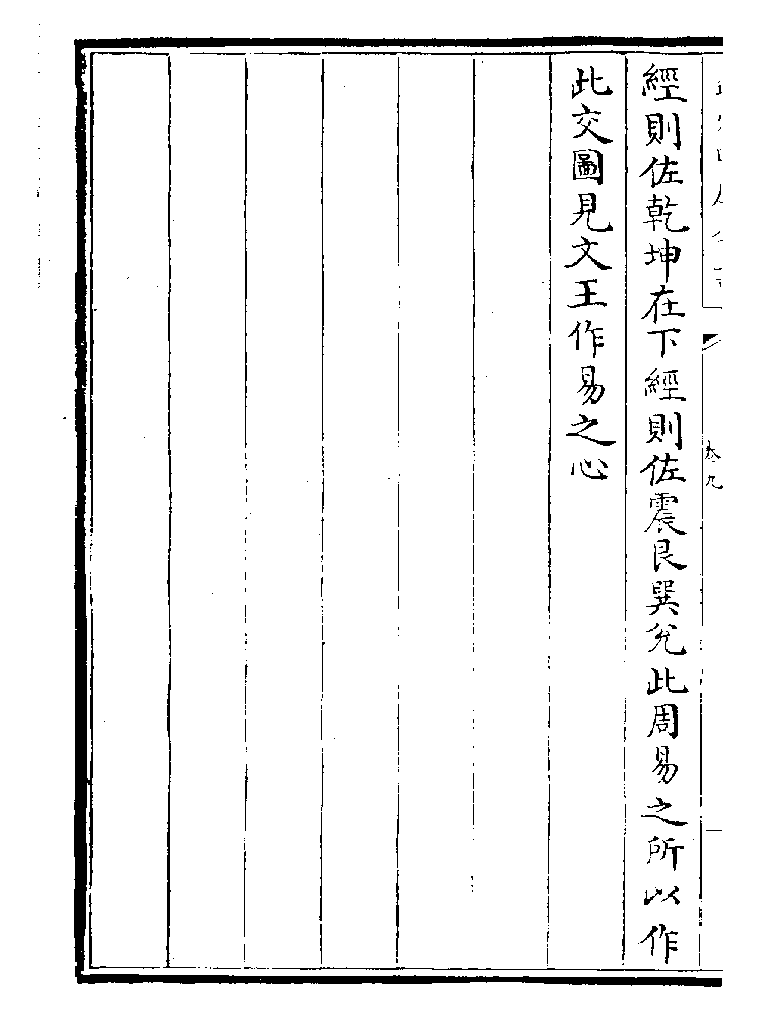 經則佐乾坤在下經則佐震艮巽兊此周易之所以作
此交圖見文王作易之心
卷九